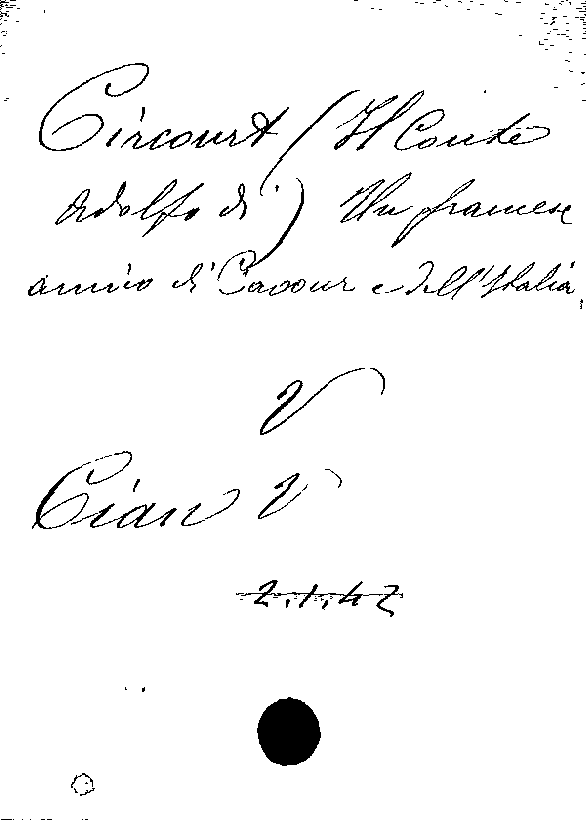 Circourt (Il Conte
Adolfo di) Un francese
amico di Cavour e dell'Italia,
V
Cian V
2.1.42